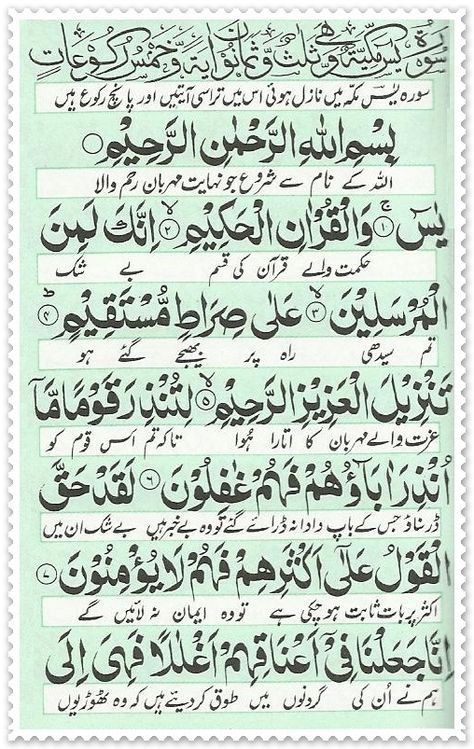 سُوْرَةُ يٰسٓ مَكِّيَّةٌ وَّهِيَ ثَلٰثٌ وَّثَمَانُوْنَ اٰيَةً وَّخَمْسُ رُكُوْعَاتٍ
سورہ یٰسٓ مکہ میں نازل ہوئی اس میں تراسی آیتیں اور پانچ رکوع ہیں
بِسْمِ اللّٰهِ الرَّحْمٰنِ الرَّحِيْمِ
اللہ کے نام سے شروع جو نہایت مہربان رحم والا
يٰسٓ ۚ﴿۱﴾ وَالْقُرْاٰنِ الْحَكِيْمِ ۙ﴿۲﴾ اِنَّكَ لَمِنَ
حکمت والے قرآن کی قسم بے شک
الْمُرْسَلِيْنَ ۙ﴿۳﴾ عَلٰى صِرَاطٍ مُّسْتَقِيْمٍ ؕ﴿۴﴾
تم سیدھی راہ پر بھیجے گئے ہو
تَنْزِيْلَ الْعَزِيْزِ الرَّحِيْمِ ۙ﴿۵﴾ لِتُنْذِرَ قَوْمًا مَّاۤ
عزت والے مہربان کا اتارا ہوا تاکہ تم اس قوم کو
اُنْذِرَ اٰبَآؤُهُمْ فَهُمْ غٰفِلُوْنَ ﴿۶﴾ لَقَدْ حَقَّ
ڈر سناؤ جس کے باپ دادا نہ ڈرائے گئے تو وہ بے خبر ہیں بے شک ان میں
الْقَوْلُ عَلٰۤى اَكْثَرِهِمْ فَهُمْ لَا يُؤْمِنُوْنَ ﴿۷﴾
اکثر پر بات ثابت ہو چکی ہے تو وہ ایمان نہ لائیں گے
اِنَّا جَعَلْنَا فِيْۤ اَعْنَاقِهِمْ اَغْلٰلًا فَهِيَ اِلَى
ہم نے ان کی گردنوں میں طوق کر دیئے ہیں کہ وہ ٹھوڑیوں